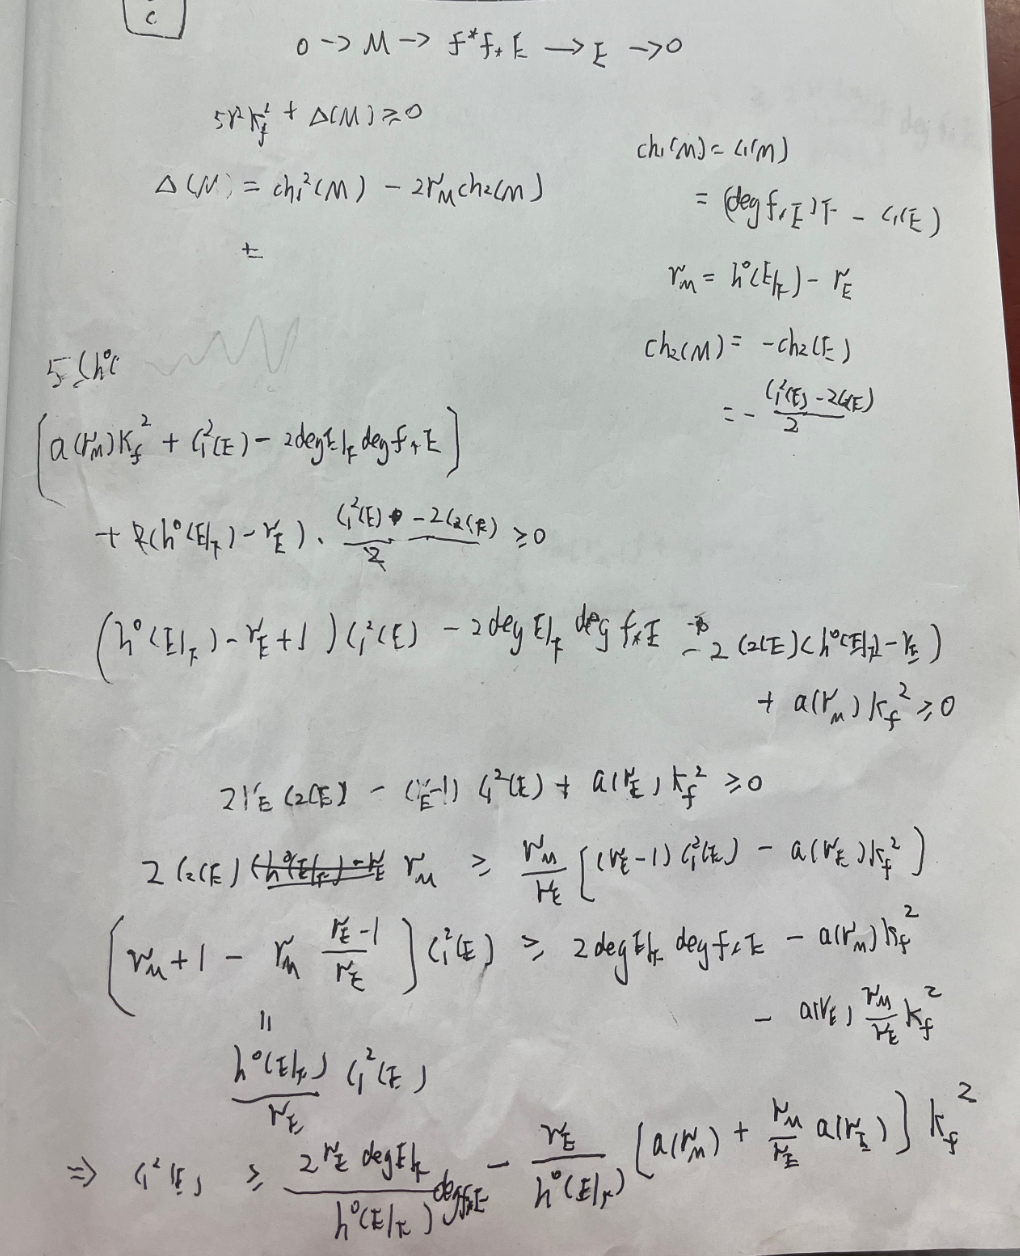 c
0 -> M -> f*f_*E -> E -> 0
5r²K_f² + Δ(M) ≥ 0
Δ(M) = ch₁²(M) - 2r_M ch₂(M)
±
ch₁(M) = c₁(M)
= (deg f_*E)F - c₁(E)
r_M = h⁰(E|_F) - r_E
ch₂(M) = -ch₂(E)
= - (c₁²(E) - 2c₂(E))/2
5(h⁰(
[a(r_M)K_f² + c₁²(E) - 2deg E|_F deg f_*E]
+ 2(h⁰(E|_F) - r_E) · (c₁²(E) - 2c₂(E))/2 ≥ 0
(h⁰(E|_F) - r_E + 1) c₁²(E) - 2deg E|_F deg f_*E - 2c₂(E)(h⁰(E|_F) - r_E)
+ a(r_M)K_f² ≥ 0
2r_E c₂(E) - (r_E-1) c₁²(E) + a(r_E)K_f² ≥ 0
2c₂(E) (h⁰(E|_F) - r_E r_M ≥ r_M/r_E [(r_E-1)c₁²(E) - a(r_E)K_f²]
(r_M + 1 - r_M (r_E-1)/r_E) c₁²(E) ≥ 2deg E|_F deg f_*E - a(r_M)K_f²
- a(r_E) r_M/r_E K_f²
=
h⁰(E|_F)/r_E c₁²(E)
⇒ c₁²(E) ≥ 2r_E deg E|_F / h⁰(E|_F) deg f_*E - r_E/h⁰(E|_F) [a(r_M) + r_M/r_E a(r_E)] K_f²